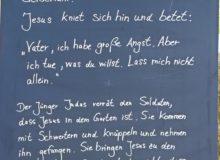 Jesus kniet sich hin und betet:
„Vater, ich habe große Angst. Aber
ich tue, was du willst. Lass mich nicht
allein."
Der Jünger Judas verrät den Soldaten,
dass Jesus in dem Garten ist. Sie kommen
mit Schwertern und Knüppeln und nehmen
ihn gefangen. Sie bringen Jesus zu den